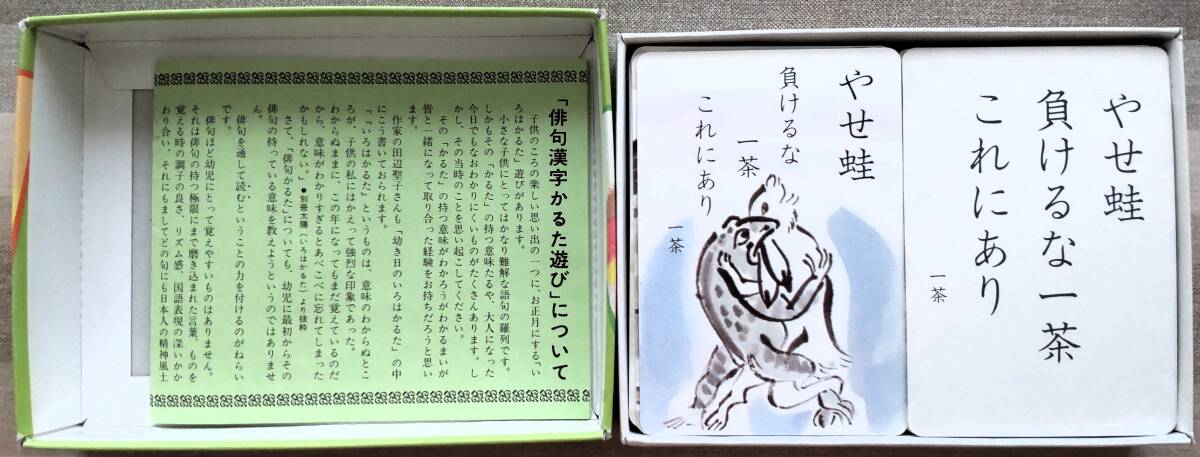 「俳句漢字かるた遊び」について
子供のころの楽しい思い出の一つに、お正月にする「い
ろはかるた」遊びがあります。
小さな子供にとってはかなり難解な語句の羅列です。
しかもその「かるた」の持つ意味たるや、大人になった
今日でもなおわかりにくいものがたくさんあります。し
かし、その当時のことを思い起こしてください。
その「かるた」の持つ意味がわかろうがわかるまいが
皆と一緒になって取り合った経験をお持ちだろうと思い
ます。
作家の田辺聖子さんも「幼き日のいろはかるた」の中
にこう書いておられます。
「「いろはかるた」というものは、意味のわからぬとこ
ろが、子供の私にはかえって強烈な印象であった。
わからぬままに、この年になってもまだ覚えているのだ
から、意味がわかりすぎるとあべこべに忘れてしまった
かもしれない。」●別冊太陽(いろはかるた)より抜粋
さて、「俳句かるた」についても、幼児に最初からその
俳句の持っている意味を教えようというのではありませ
ん。
俳句を通して読むということの力を付けるのがねらい
です。
俳句ほど幼児にとって覚えやすいものはありません。
それは俳句の持つ極限にまで磨き込まれた言葉、ものを
覚える時の調子の良さ、リズム感、国語表現の深いかか
わり合い、それにもましてどの句にも日本人の精神風土
やせ蛙
負けるな
一茶
これにあり
一茶
やせ蛙
負けるな一茶
これにあり
一茶